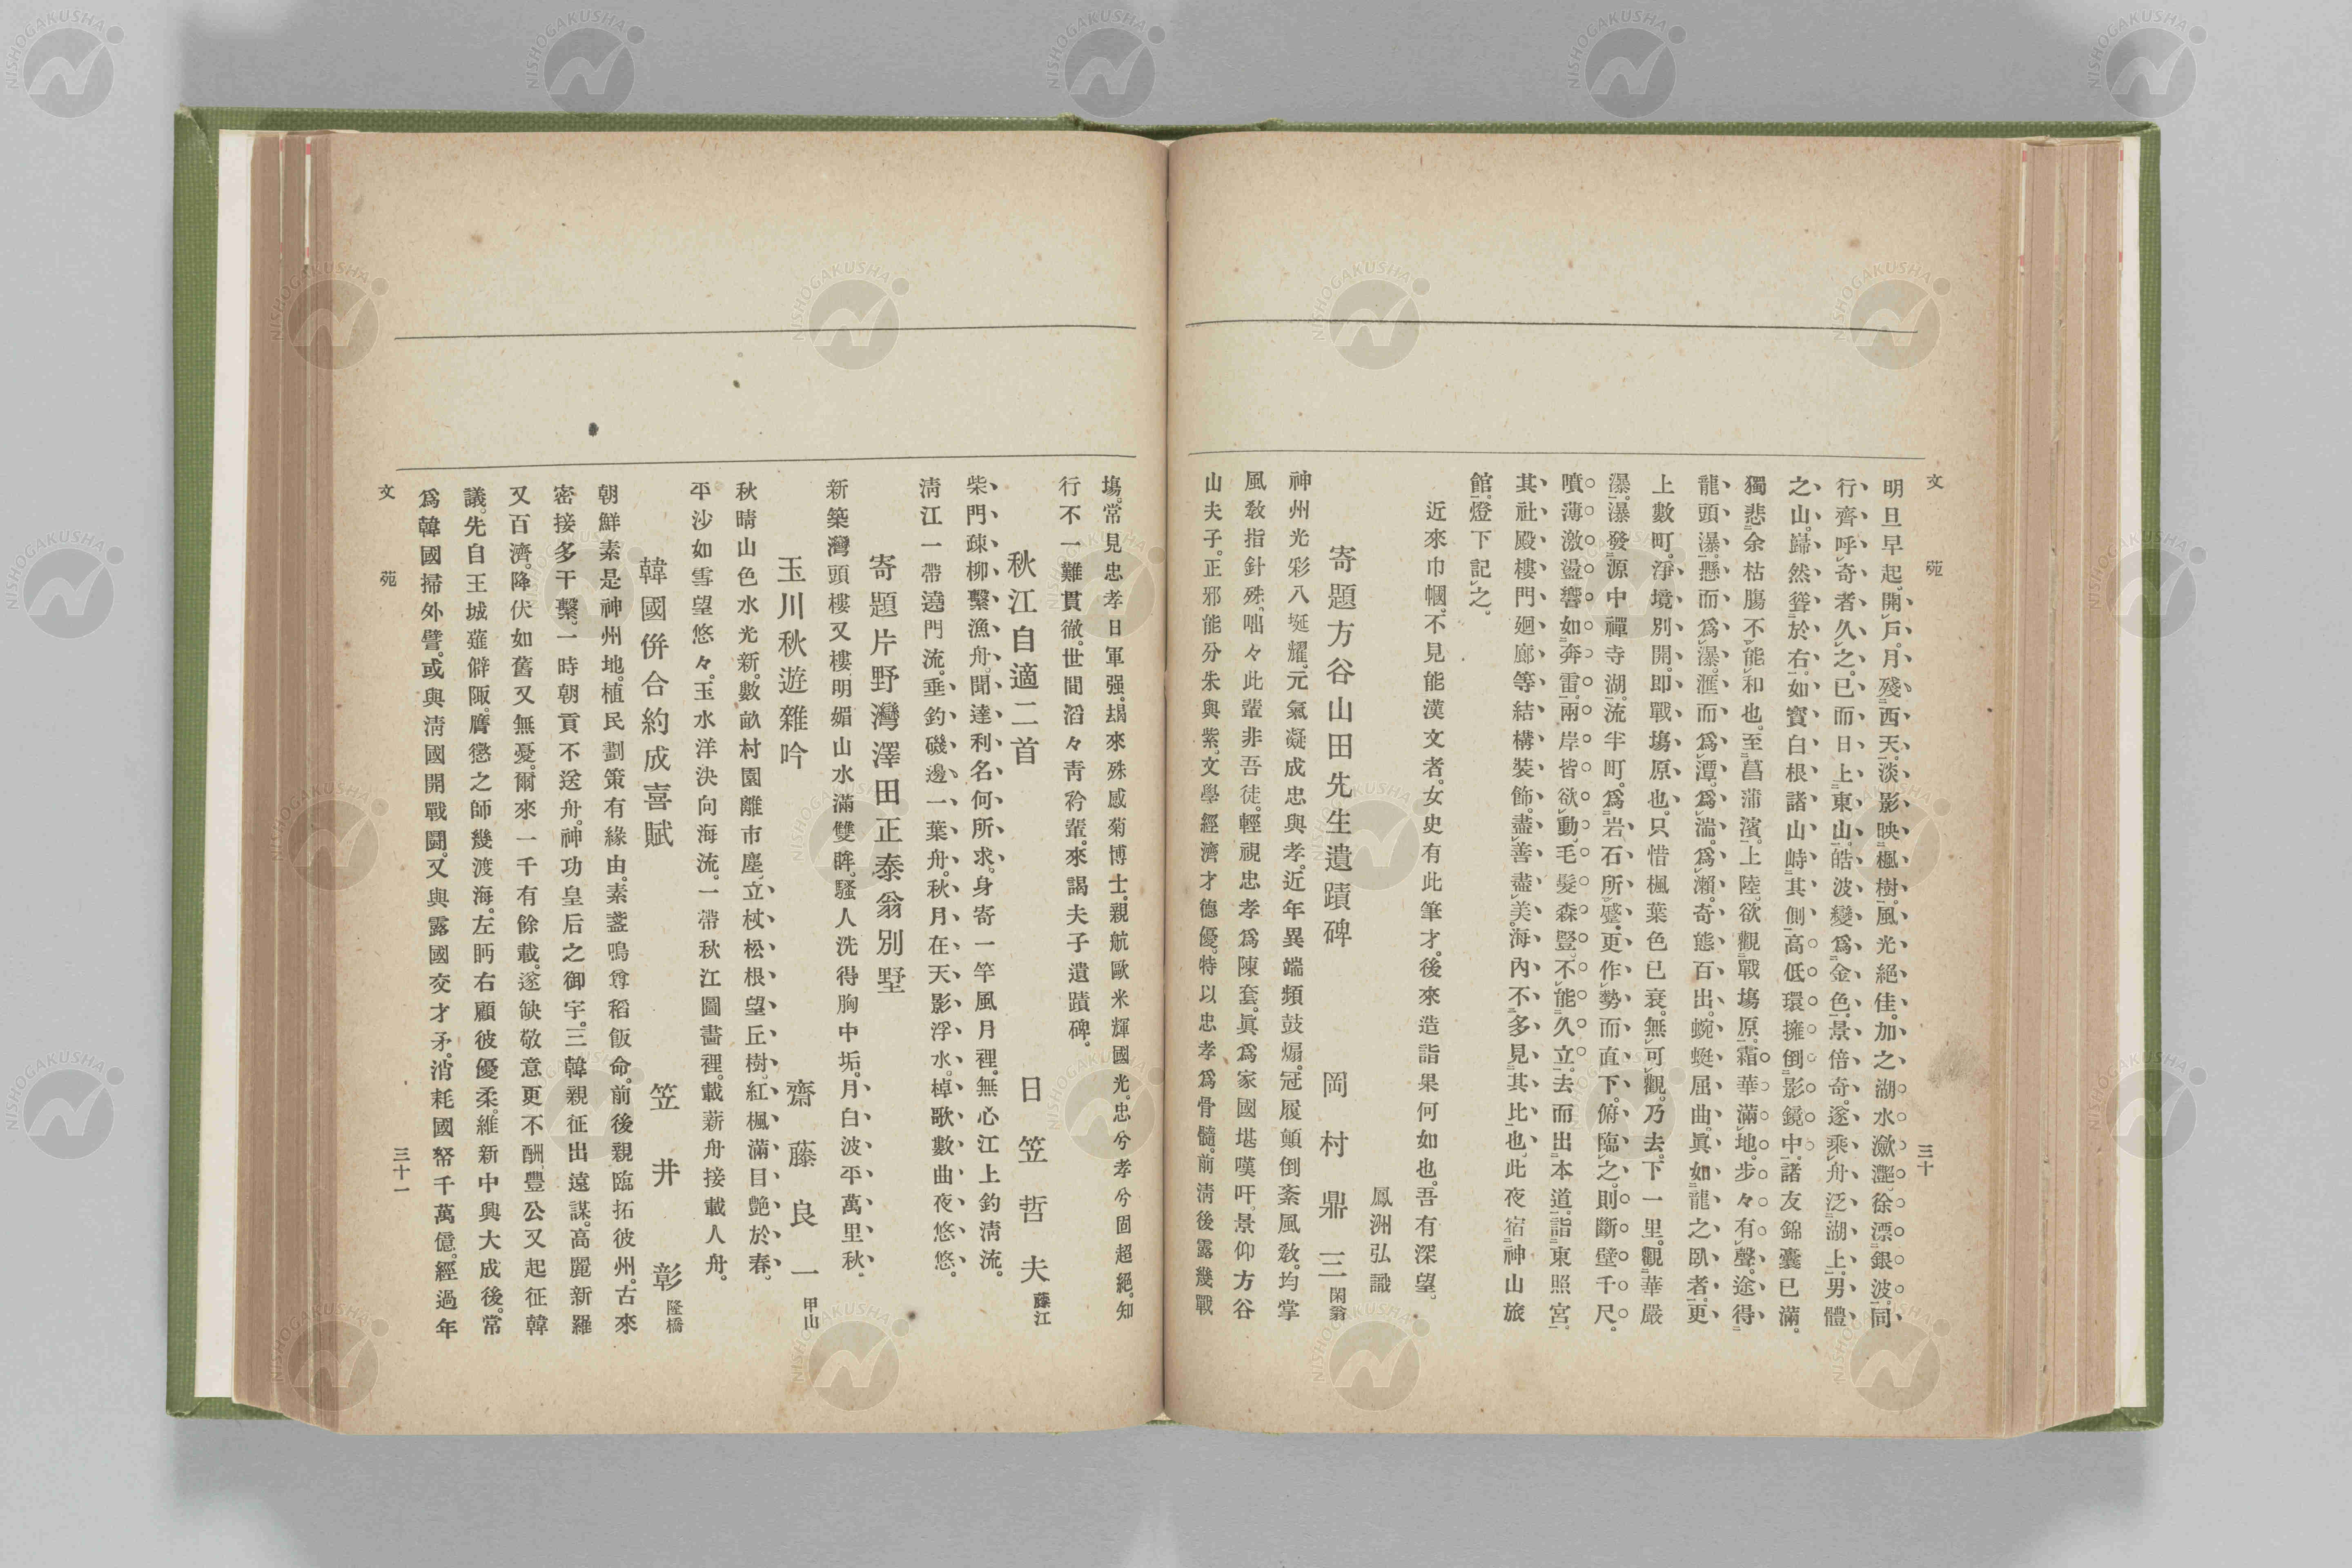 文苑
三十
明旦早起。開戶。月殘西天。淡影映楓樹。風光絕佳。加之湖水瀲灎。徐漂銀波。同
行齊呼奇者久之。已而日上東山。皓波變爲金色。景倍奇。遂乘舟泛湖上。男體
之山。巋然聳於右。如實白根諸山峙其側。高低環擁倒影鏡中。諸友錦囊已滿。
獨悲余枯腸不能和也。至菖蒲濱。上陸。欲觀戰塲原。霜華滿地。步々有聲。途得
龍頭瀑。懸而爲瀑。滙而爲潭。爲湍。爲瀨。奇態百出。蜿蜒屈曲。眞如龍之臥者。更
上數町。淨境別開。卽戰塲原也。只惜楓葉色已衰。無可觀。乃去。下一里。觀華嚴
瀑。瀑發源中禪寺湖。流半町。爲岩石所蹙。更作勢而直下。俯臨之。則斷壁千尺。
噴薄激盪。響如奔雷。兩岸皆欲動。毛髮森豎。不能久立。去而出本道。詣東照宮。
其社殿樓門廻廊等結構裝飾。盡善盡美。海內不多見其比也。此夜宿神山旅
館。燈下記之。
近來巾幗。不見能漢文者。女史有此筆才。後來造詣果何如也。吾有深望。
鳳洲弘識
寄題方谷山田先生遺蹟碑 岡村鼎三 閑翁
神州光彩八埏耀。元氣凝成忠與孝。近年異端頻鼓煽。冠履顛倒紊風敎。均掌
風敎指針殊。咄々此輩非吾徒。輕視忠孝爲陳套。眞爲家國堪嘆吁。景仰方谷
山夫子。正邪能分朱與紫。文學經濟才德優。特以忠孝爲骨髓。前淸後露幾戰
塲。常見忠孝日軍强。朅來殊感菊博士。親航歐米輝國光。忠兮孝兮固超絕。知
行不一難貫徹。世間滔々靑衿輩。來謁夫子遺蹟碑。
秋江自適二首 日笠哲夫 藤江
柴門疎柳繫漁舟。聞達利名何所求。身寄一竿風月裡。無心江上釣淸流。
淸江一帶遶門流。垂釣磯邊一葉舟。秋月在天影浮水。棹歌數曲夜悠悠。
寄題片野灣澤田正泰翁別墅
新築灣頭樓又樓。明媚山水滿雙眸。騷人洗得胸中垢。月白波平萬里秋。
玉川秋遊雜吟 齋藤良一 甲山
秋晴山色水光新。數畝村園離市塵。立杖松根望丘樹。紅楓滿目艶於春。
平沙如雪望悠々。玉水洋決向海流。一帶秋江圖畵裡。載薪舟接載人舟。
韓國倂合約成喜賦 笠井彰 隆橋
朝鮮素是神州地。植民劃策有緣由。素盞鳴尊稻飯命。前後親臨拓彼州。古來
密接多干繫。一時朝貢不送舟。神功皇后之御宇。三韓親征出遠謀。高麗新羅
又百濟。降伏如舊又無憂。爾來一千有餘載。遂缺敬意更不酬。豐公又起征韓
議。先自王城薤僻陬。膺懲之師幾渡海。左眄右顧彼優柔。維新中興大成後。常
爲韓國掃外讐。或與淸國開戰鬪。又與露國交才矛。消耗國帑千萬億。經過年
文苑
三十一